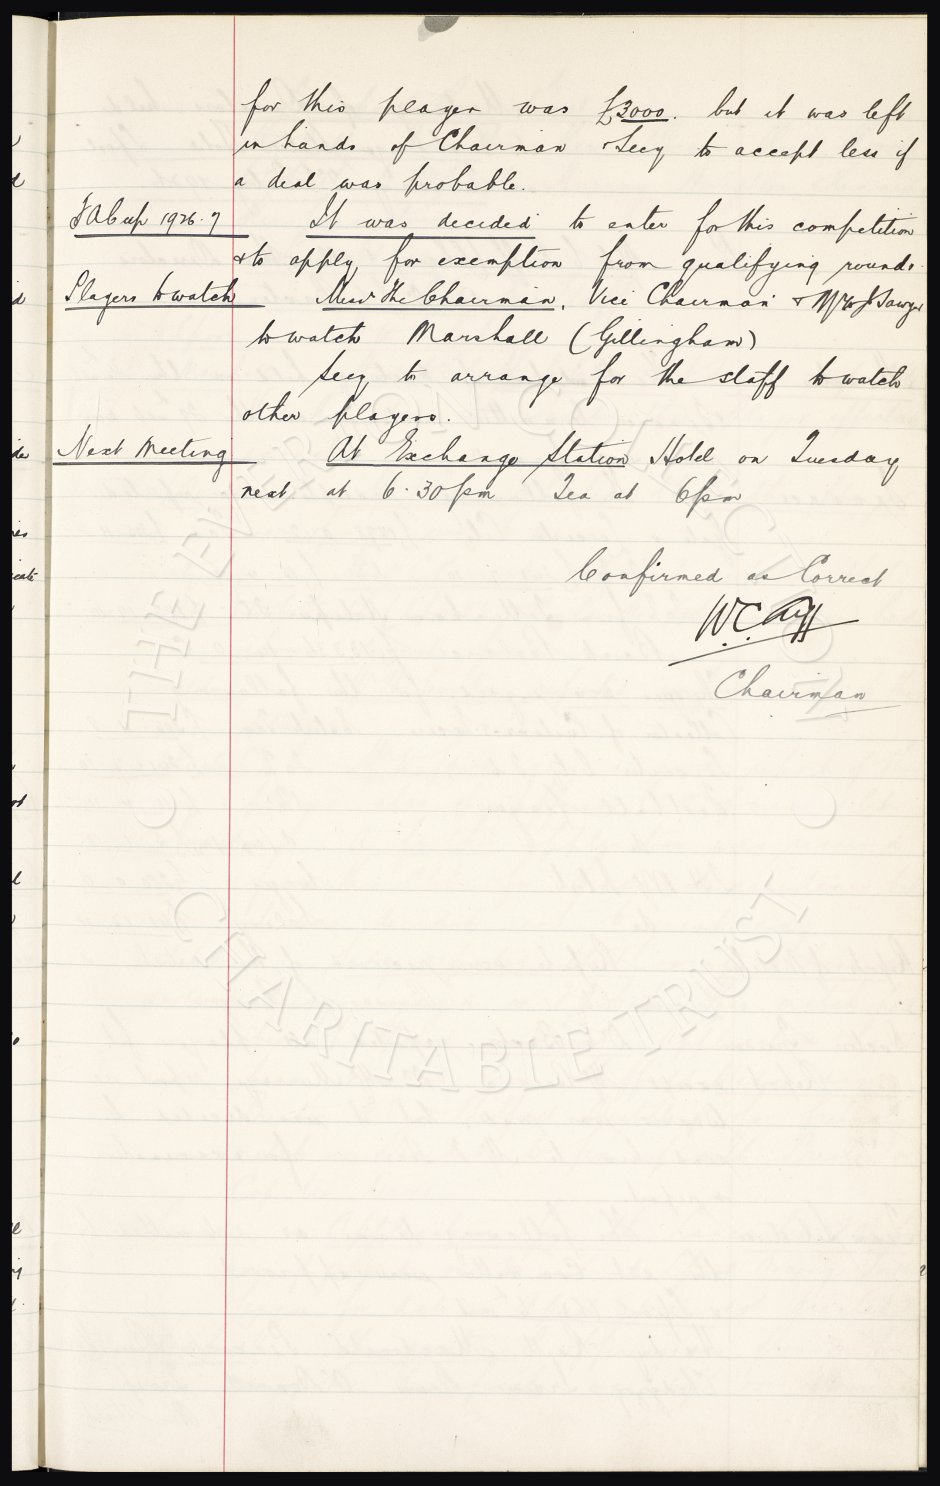 for this player was £3000. but it was left
in hands of Chairman & Secy to accept less if
a deal was probable.
F A Cup 1926.7 It was decided to enter for this competition
& to apply for exemption from qualifying rounds.
Players to watch Messrs The Chairman, Vice Chairman & Mr W J Sawyer
to watch Marshall (Gillingham)
Secy to arrange for the staff to watch
other players.
Next Meeting At Exchange Station Hotel on Tuesday
next at 6.30 pm Tea at 6 pm
Confirmed as Correct
W.C. Cuff
Chairman
THE EVERTON COLLECTION
CHARITABLE TRUST